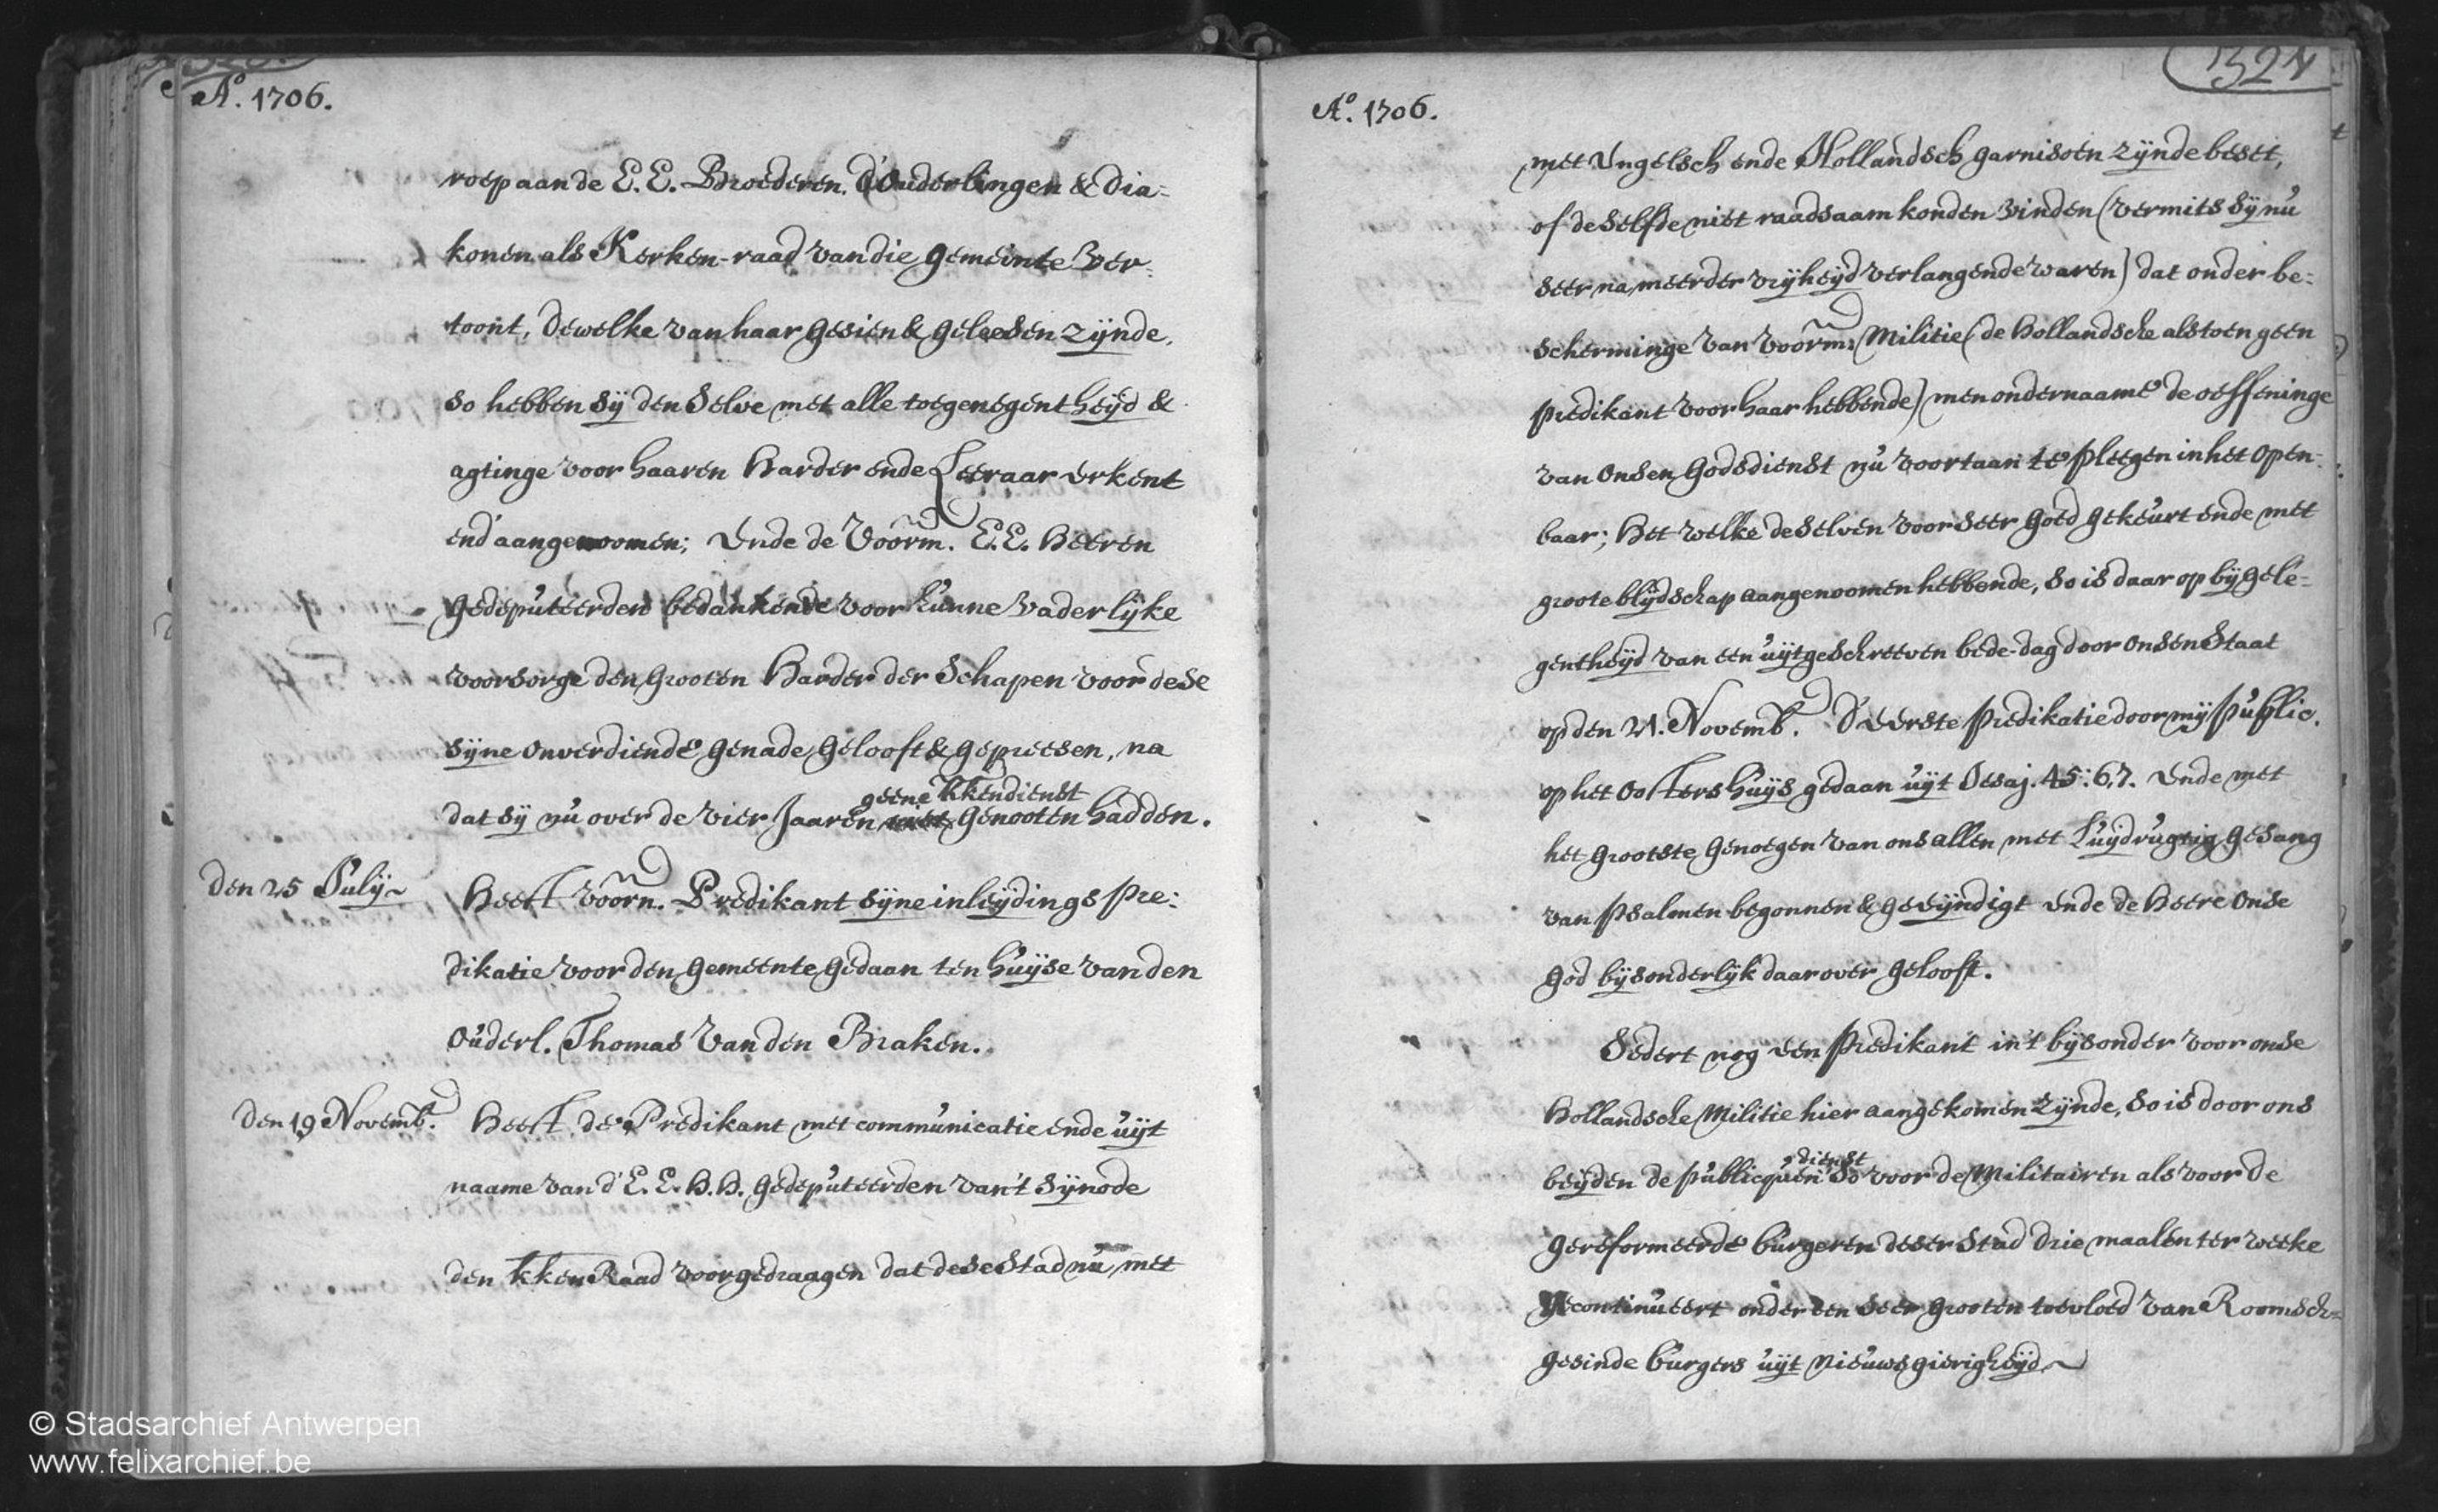 Aº. 1706.
roep aan de E. E. Broederen. d'Ouderlingen & dia=
konen als Kerken-raad van die gemeinte ver=
toont, dewelke van haar gesien & geleesen zÿnde,
so hebben sÿ den selve met alle toegenegentheÿd &
agtinge voor haaren Harder ende Leeraar erkent
end' aangenoomen; Ende de voorm. E. E. Heeren
gedeputeerden bedankende voor hunne vaderlÿke
voorsorge den Grooten Harder der Schapen voor dese
sÿne onverdiende genade gelooft & gepreesen, na
geene kkendienst
dat sÿ nu over de vier Jaaren genooten hadden.
den 25 Julÿ
Heeft voorn. Predikant sÿne inleÿdings pre=
dikatie voor den gemeente gedaan ten huÿse van den
Ouderl. Thomas van den Braken.
den 19 Novemb.
Heeft de Predikant met communicatie ende uÿt
naame van d'E. E. H. H. gedeputeerden van't sÿnode
den kken Raad voorgedraagen dat dese Stad nu met
324
Aº. 1706.
met Engelsch ende Hollandsch garnisoen zÿnde beset,
of deselfde niet raadsaam konden vinden (vermits sÿ nu
seer na meerder vrÿheÿd verlangende waren) dat onder be=
scherminge van voorm: Militie (de Hollandsche als toen geen
predikant voor haar hebbende) men ondernaame de oeffeninge
van onsen godsdienst nu voortaan te pleegen in het open=
baar; Het welke deselven voor seer goed gekeurt ende met
groote blÿdschap aangenoomen hebbende, so is daar op bÿ gele=
gentheÿd van een uÿtgeschreeven bede-dag door onsen Staat
op den 21. Novemb. d'eerste predikatie door mÿ public.
op het Oostershuÿs gedaan uÿt Jesaj. 45: 6,7. Ende met
het grootste genoegen van ons allen met luÿdrugtig gesang
van psalmen begonnen & geeÿndigt ende de Heere onse
god bÿsonderlÿk daar over gelooft.
Sedert nog een predikant in't bÿsonder voor onse
Hollandsche Militie hier aangekomen zÿnde, so is door ons
dienst
beÿden de publicquen so voor de Militairen als voor de
gereformeerde burgeren deser Stad drie maalen ter weeke
gecontinueert onder een seer grooten toevloed van Roomsch=
gesinde burgers uÿt nieuwsgierigheÿd
© Stadsarchief Antwerpen
www.felixarchief.be